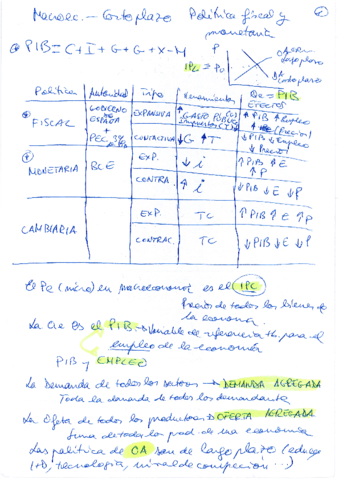 Macroec. - Corto plazo Política fiscal y monetaria
PIB = C + I + G + X - M
IPC = Pe
Política Autoridad Tipo Qe = PIB
EFECTOS
FISCAL GOBIERNO DE ESPAÑA + PEC EXPANSIVA ↑ GASTO PÚBLICO ↑ PIB ↑ Empleo ↑ (Precios)
CONTRACTIVA ↓G ↑T ↓ PIB ↓ Empleo ↓ Precios
MONETARIA BCE EXP. ↓ i ↑ PIB ↑ E ↑ P
CONTRA. ↑ i ↓ PIB ↓ E ↓ P
CAMBIARIA EXP. TC ↑ PIB ↑ E ↑ P
CONTRAC. TC ↓ PIB ↓ E ↓ P
El Pe (micro) en macroeconomía es el IPC
Precio de todos los bienes de la economía.
La Qe es el PIB → Variable de referencia tb. para el
empleo de la economía
PIB y EMPLEO
La Demanda de todos los sectores → DEMANDA AGREGADA
Toda la demanda de todos los demandantes
La Oferta de todos los productores → OFERTA AGREGADA
Suma de todos los prod. de una economía
Las política de OA son de largo plazo (educ,
I+D, tecnología, nivel de competición...)